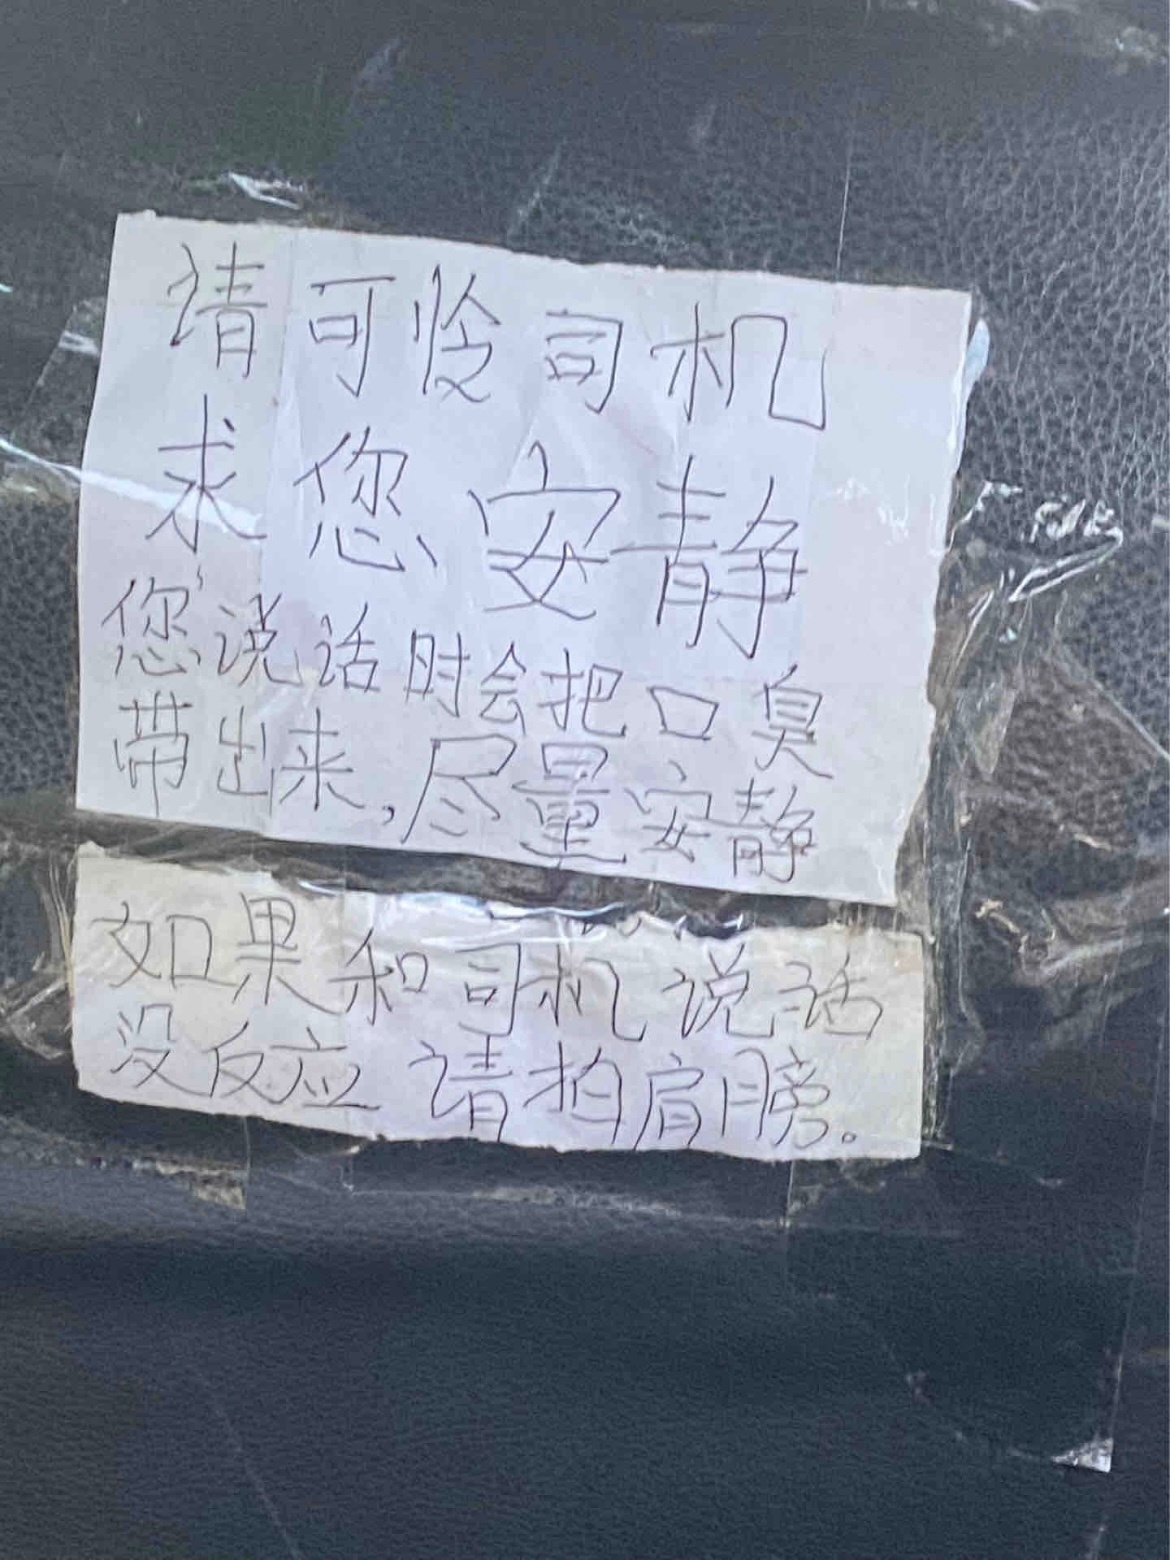 请可怜司机
求您、安静
您说话时会把口臭
带出来,尽量安静
如果和司机说话
没反应 请拍肩膀。